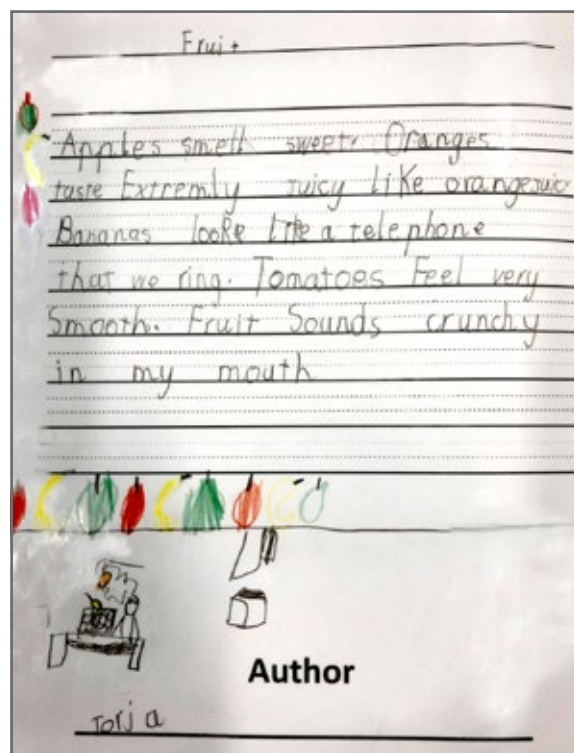 Fruit
Apples smell sweet. Oranges
taste Extremly Juicy like orangejuic
Bananas looke like a telephone
that we ring. Tomatoes Feel very
Smooth. Fruit Sounds crunchy
in my mouth
Author
Torja